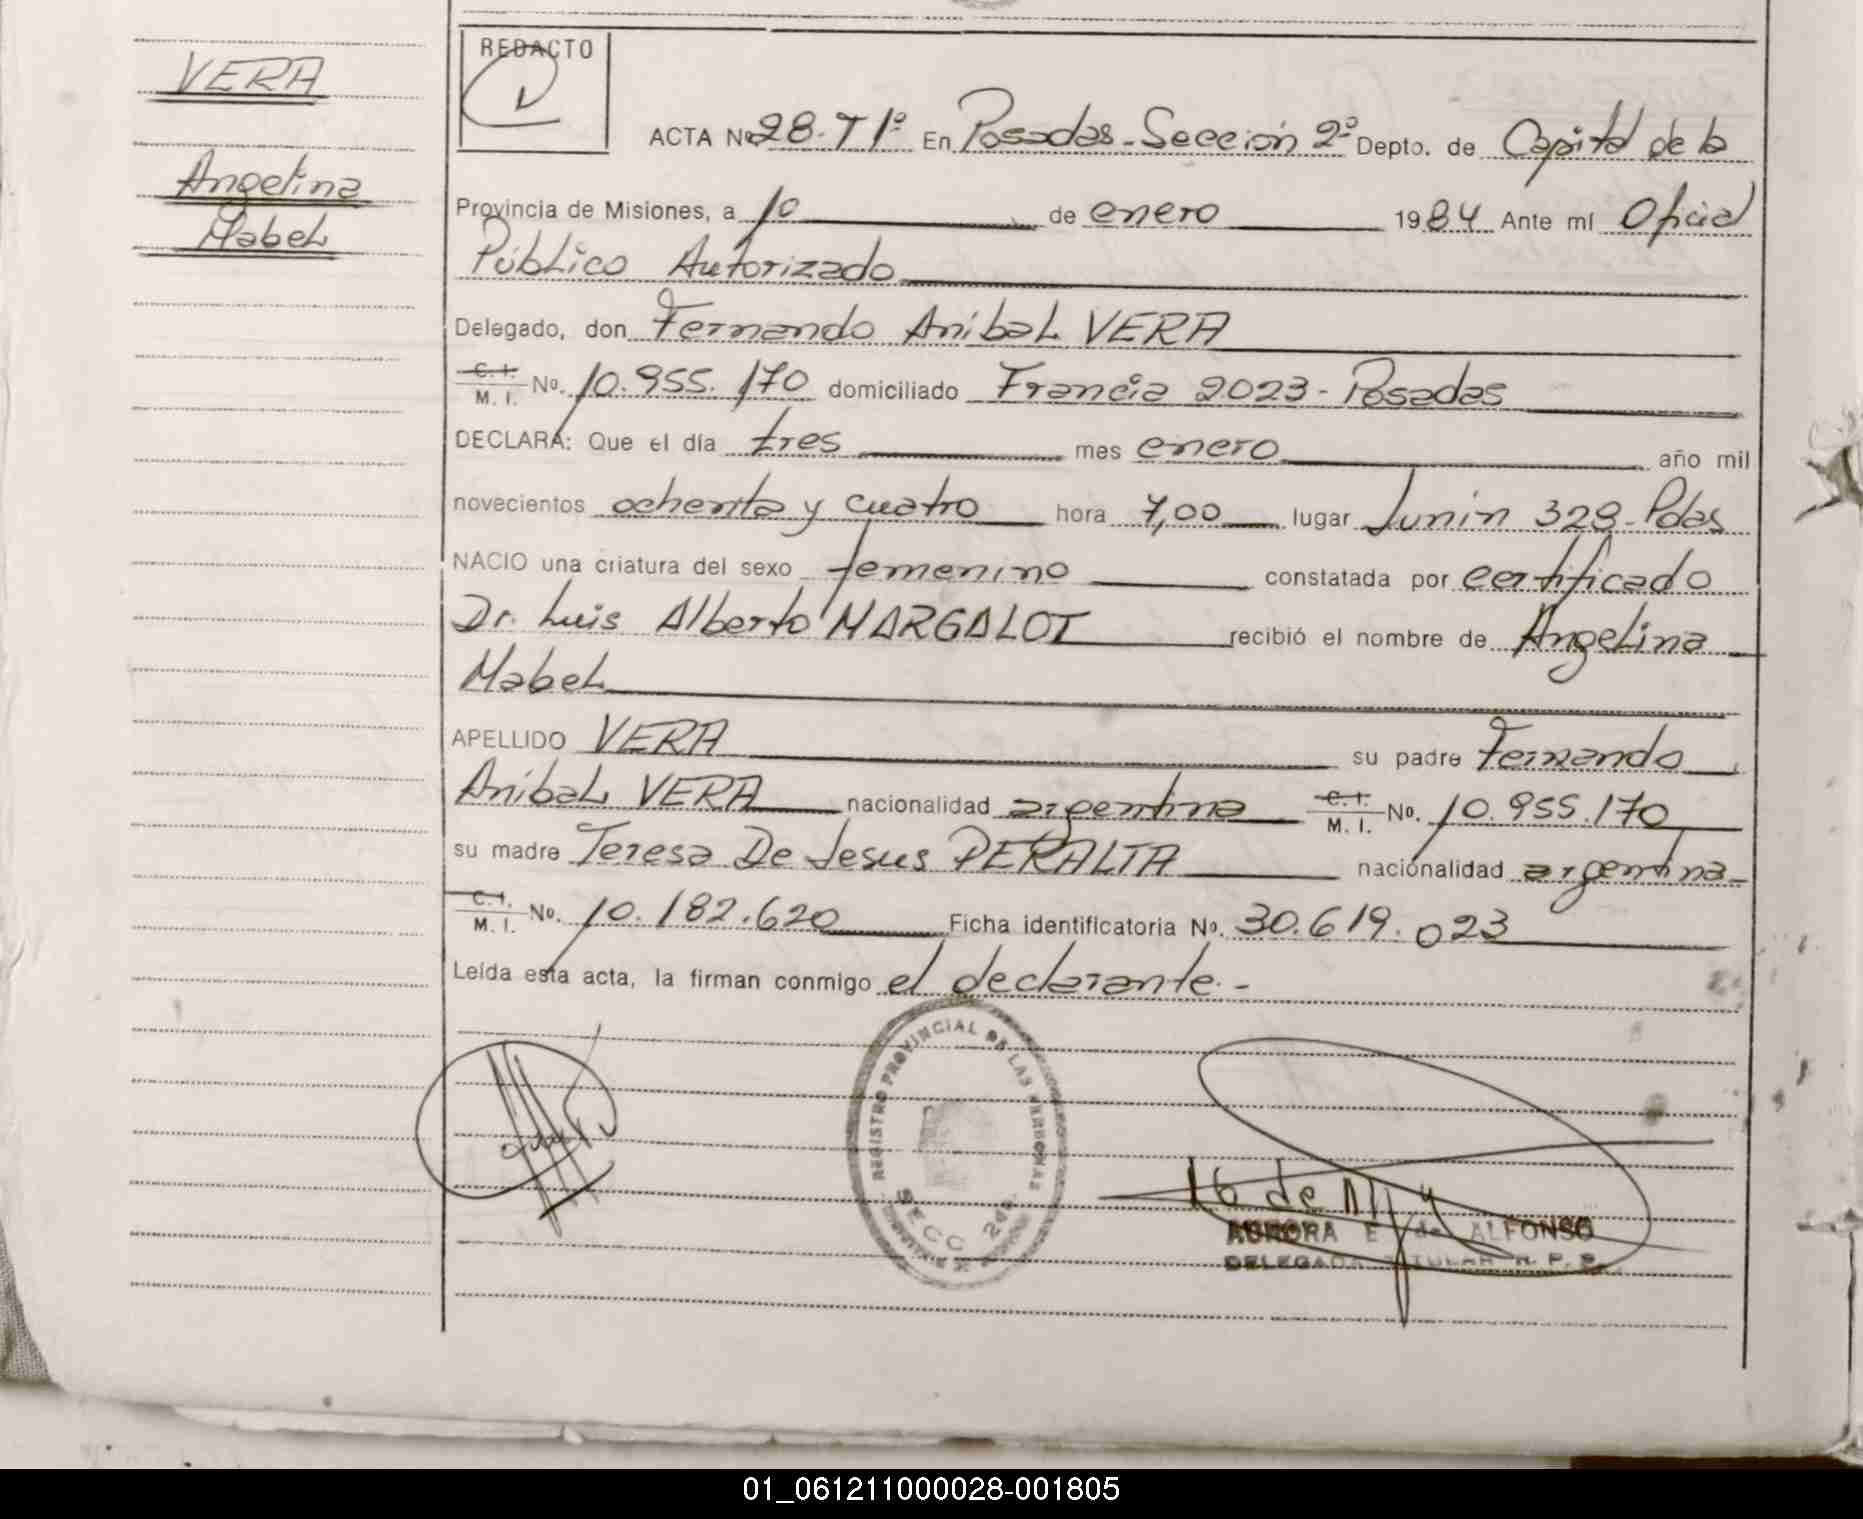 VERA
Angelina
Mabel
REDACTO
ACTA Nº 28. Tº 1º En Posadas - Sección 2º Depto. de Capital de la
Provincia de Misiones, a 10 de enero 1984 Ante mí Oficial
Público Autorizado
Delegado, don Fernando Anibal VERA
C. I. M. I. No. 10.955.170 domiciliado Francia 2023 - Posadas
DECLARA: Que el día tres mes enero año mil
novecientos ochenta y cuatro hora 7,00 lugar Junin 328 - Pdas
NACIO una criatura del sexo femenino constatada por certificado
Dr. Luis Alberto MARGALOT recibió el nombre de Angelina
Mabel
APELLIDO VERA su padre Fernando
Anibal VERA nacionalidad argentina C. I. M. I. No. 10.955.170
su madre Teresa De Jesus PERALTA nacionalidad argentina
C. I. M. I. No. 10.182.620 Ficha identificatoria No. 30.619.023
Leída esta acta, la firman conmigo el declarante. -
REGISTRO PROVINCIAL DE LAS PERSONAS
SECC 2da.
16 de
AURORA E de ALFONSO
DELEGADA TITULAR R. P. P.
01_061211000028-001805